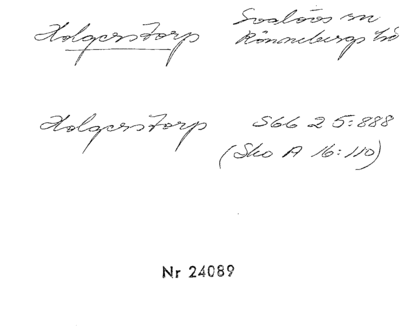 Holgerstorp Svalövs sn
Rönnebergs hd
Holgerstorp S66 2 5:888
(Sko A 16:110)
Nr 24089